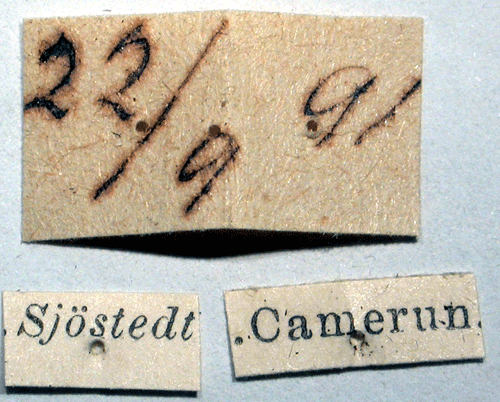 22/9 91
Sjöstedt
Camerun.